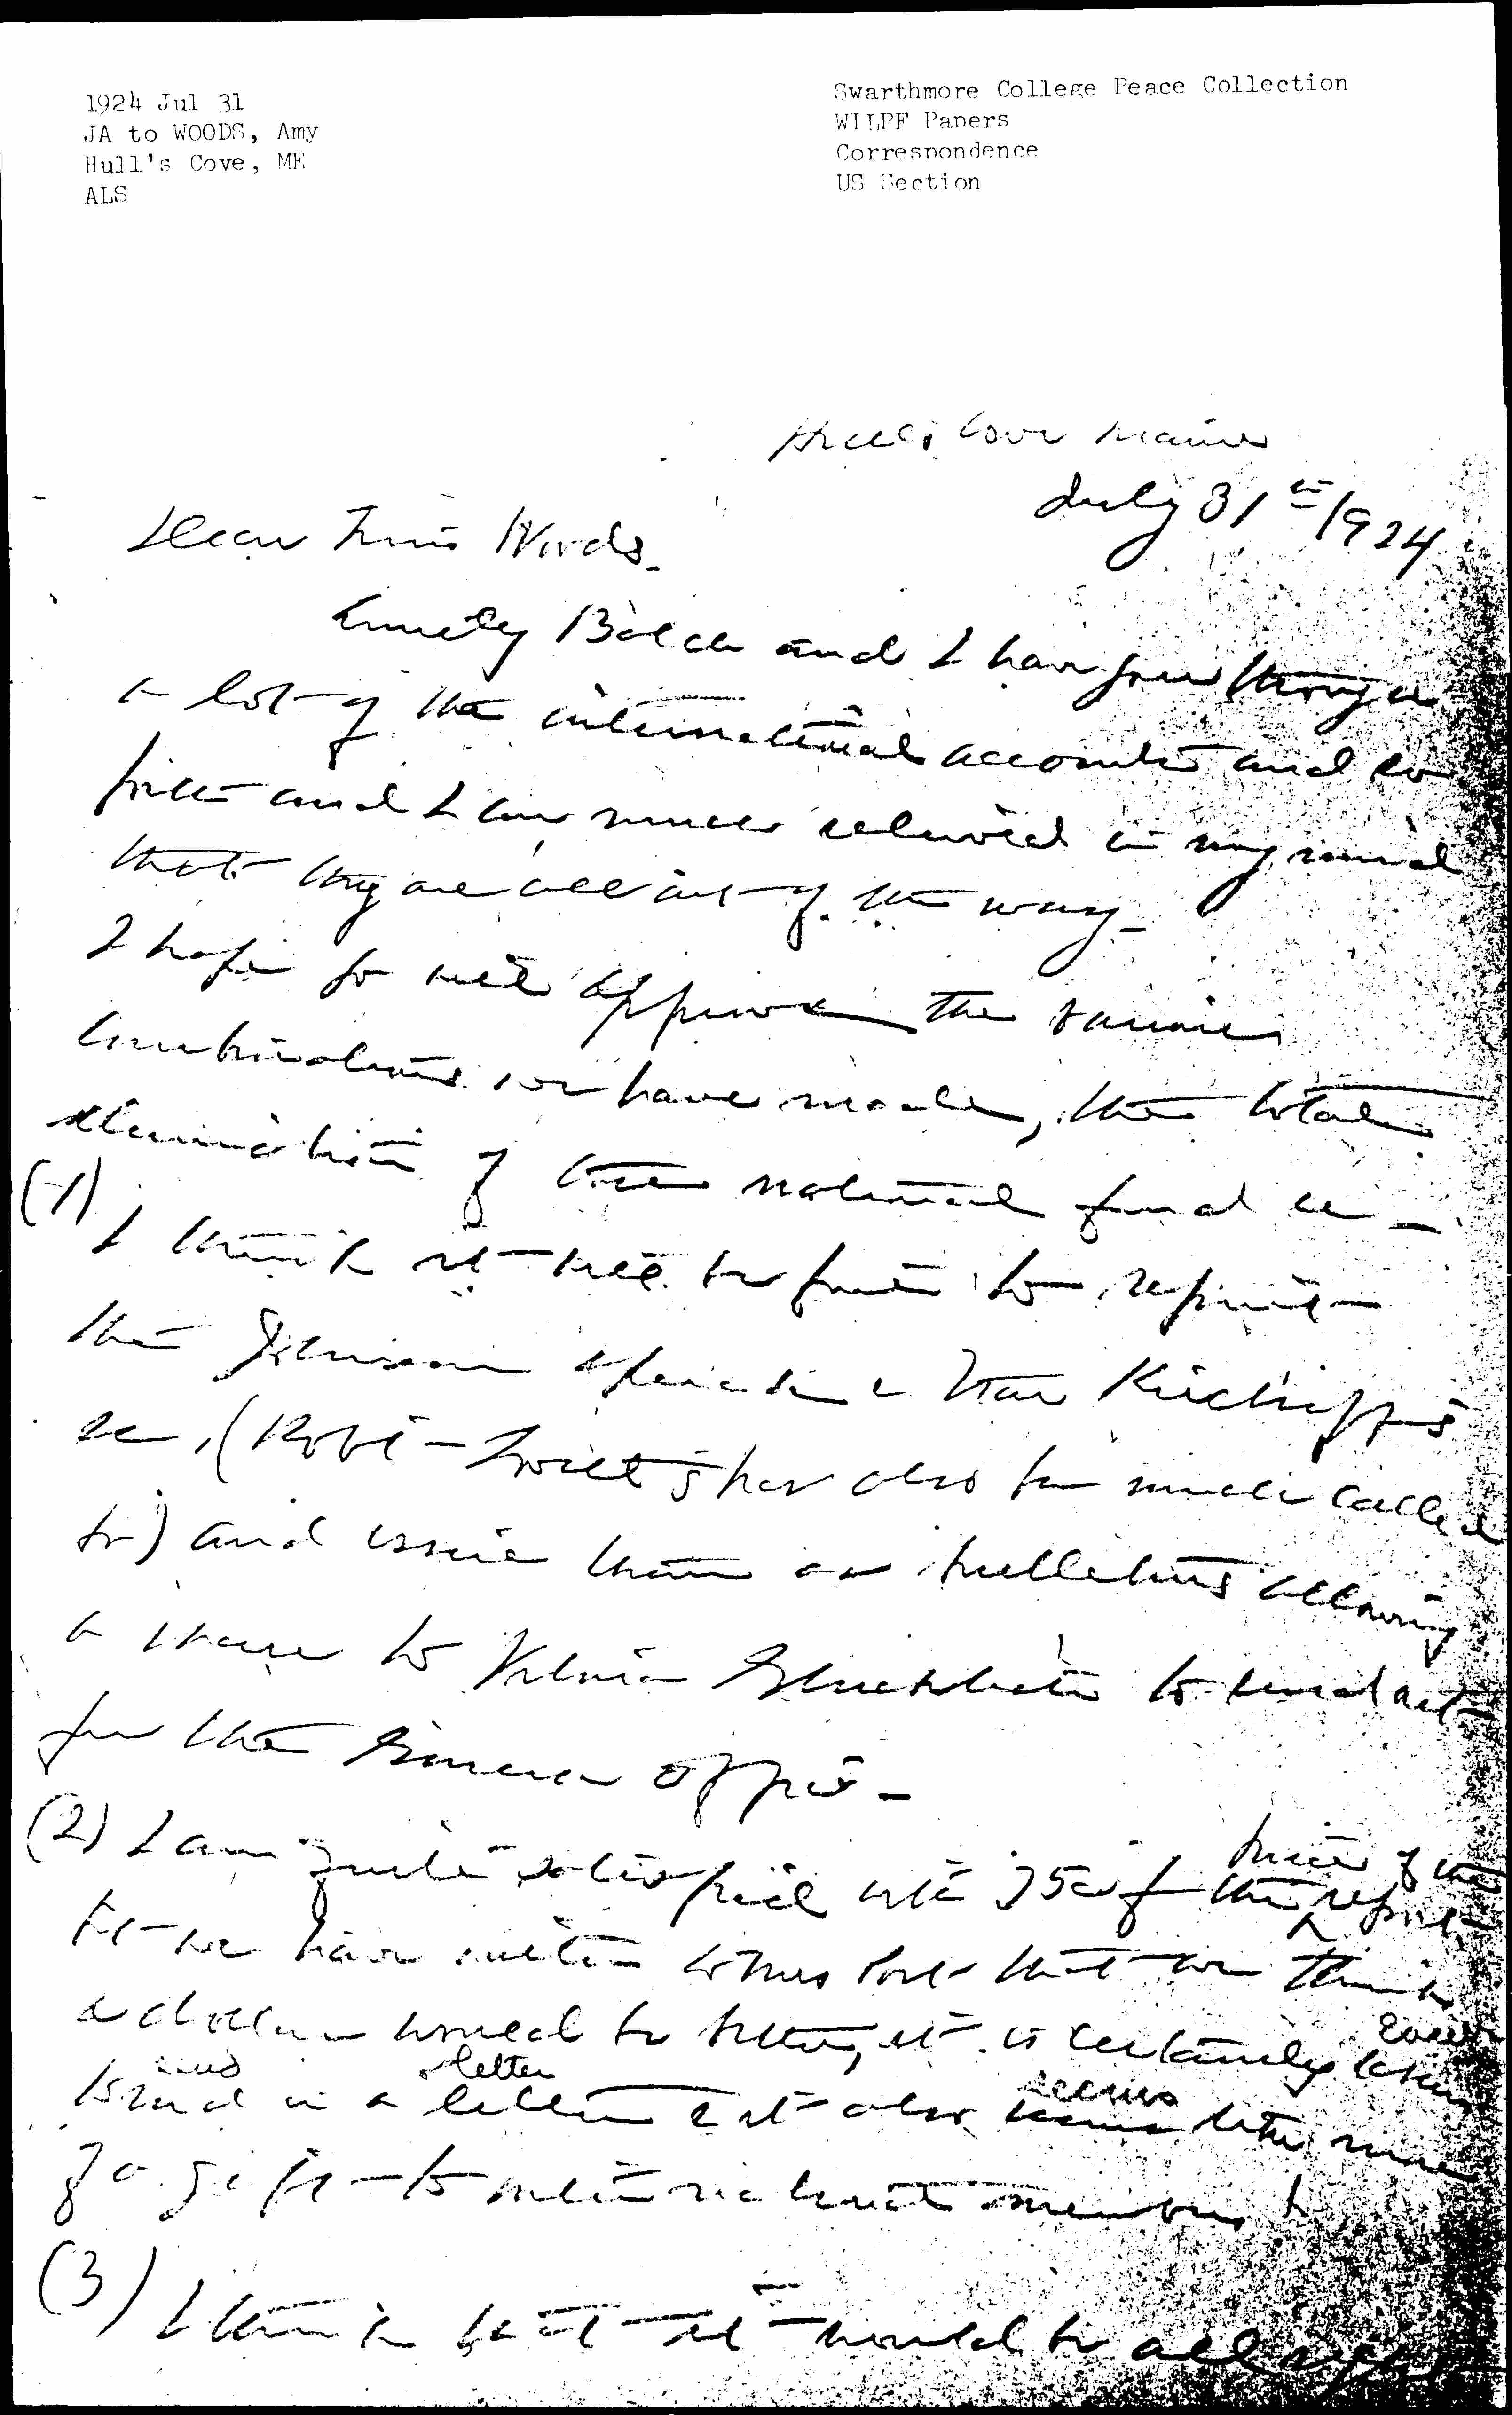 1924 Jul 31
JA to WOODS, Amy
Hull's Cove, ME
ALS
Swarthmore College Peace Collection
WILPF Papers
Correspondence
US Section
Hulls Cove Maine
July 31st 1924
Dear Miss Woods.
Emily Balch and I have gone through
a lot of the international accounts and so
forth and I am much relieved in my mind
that they are all out of the way_
I hope you will approve the various
combinations we have made, the total
elimination of the national fund &c _
(1) I think it will be fine to reprint
the Johnson speech & Frau Kirchhoff's
&c, (Robt Lovett's has also been much called
for) and issue them as bulletins allowing
a share to Vilma Glucklich to send out
for the Geneva office _
(2) I am quite satisfied with 75c for the price of the report
but we have written to Miss that we think
a dollar would be better, it is certainly easier
to send in a letter & it also seems
send letter seems
(3) I think that it would be all right